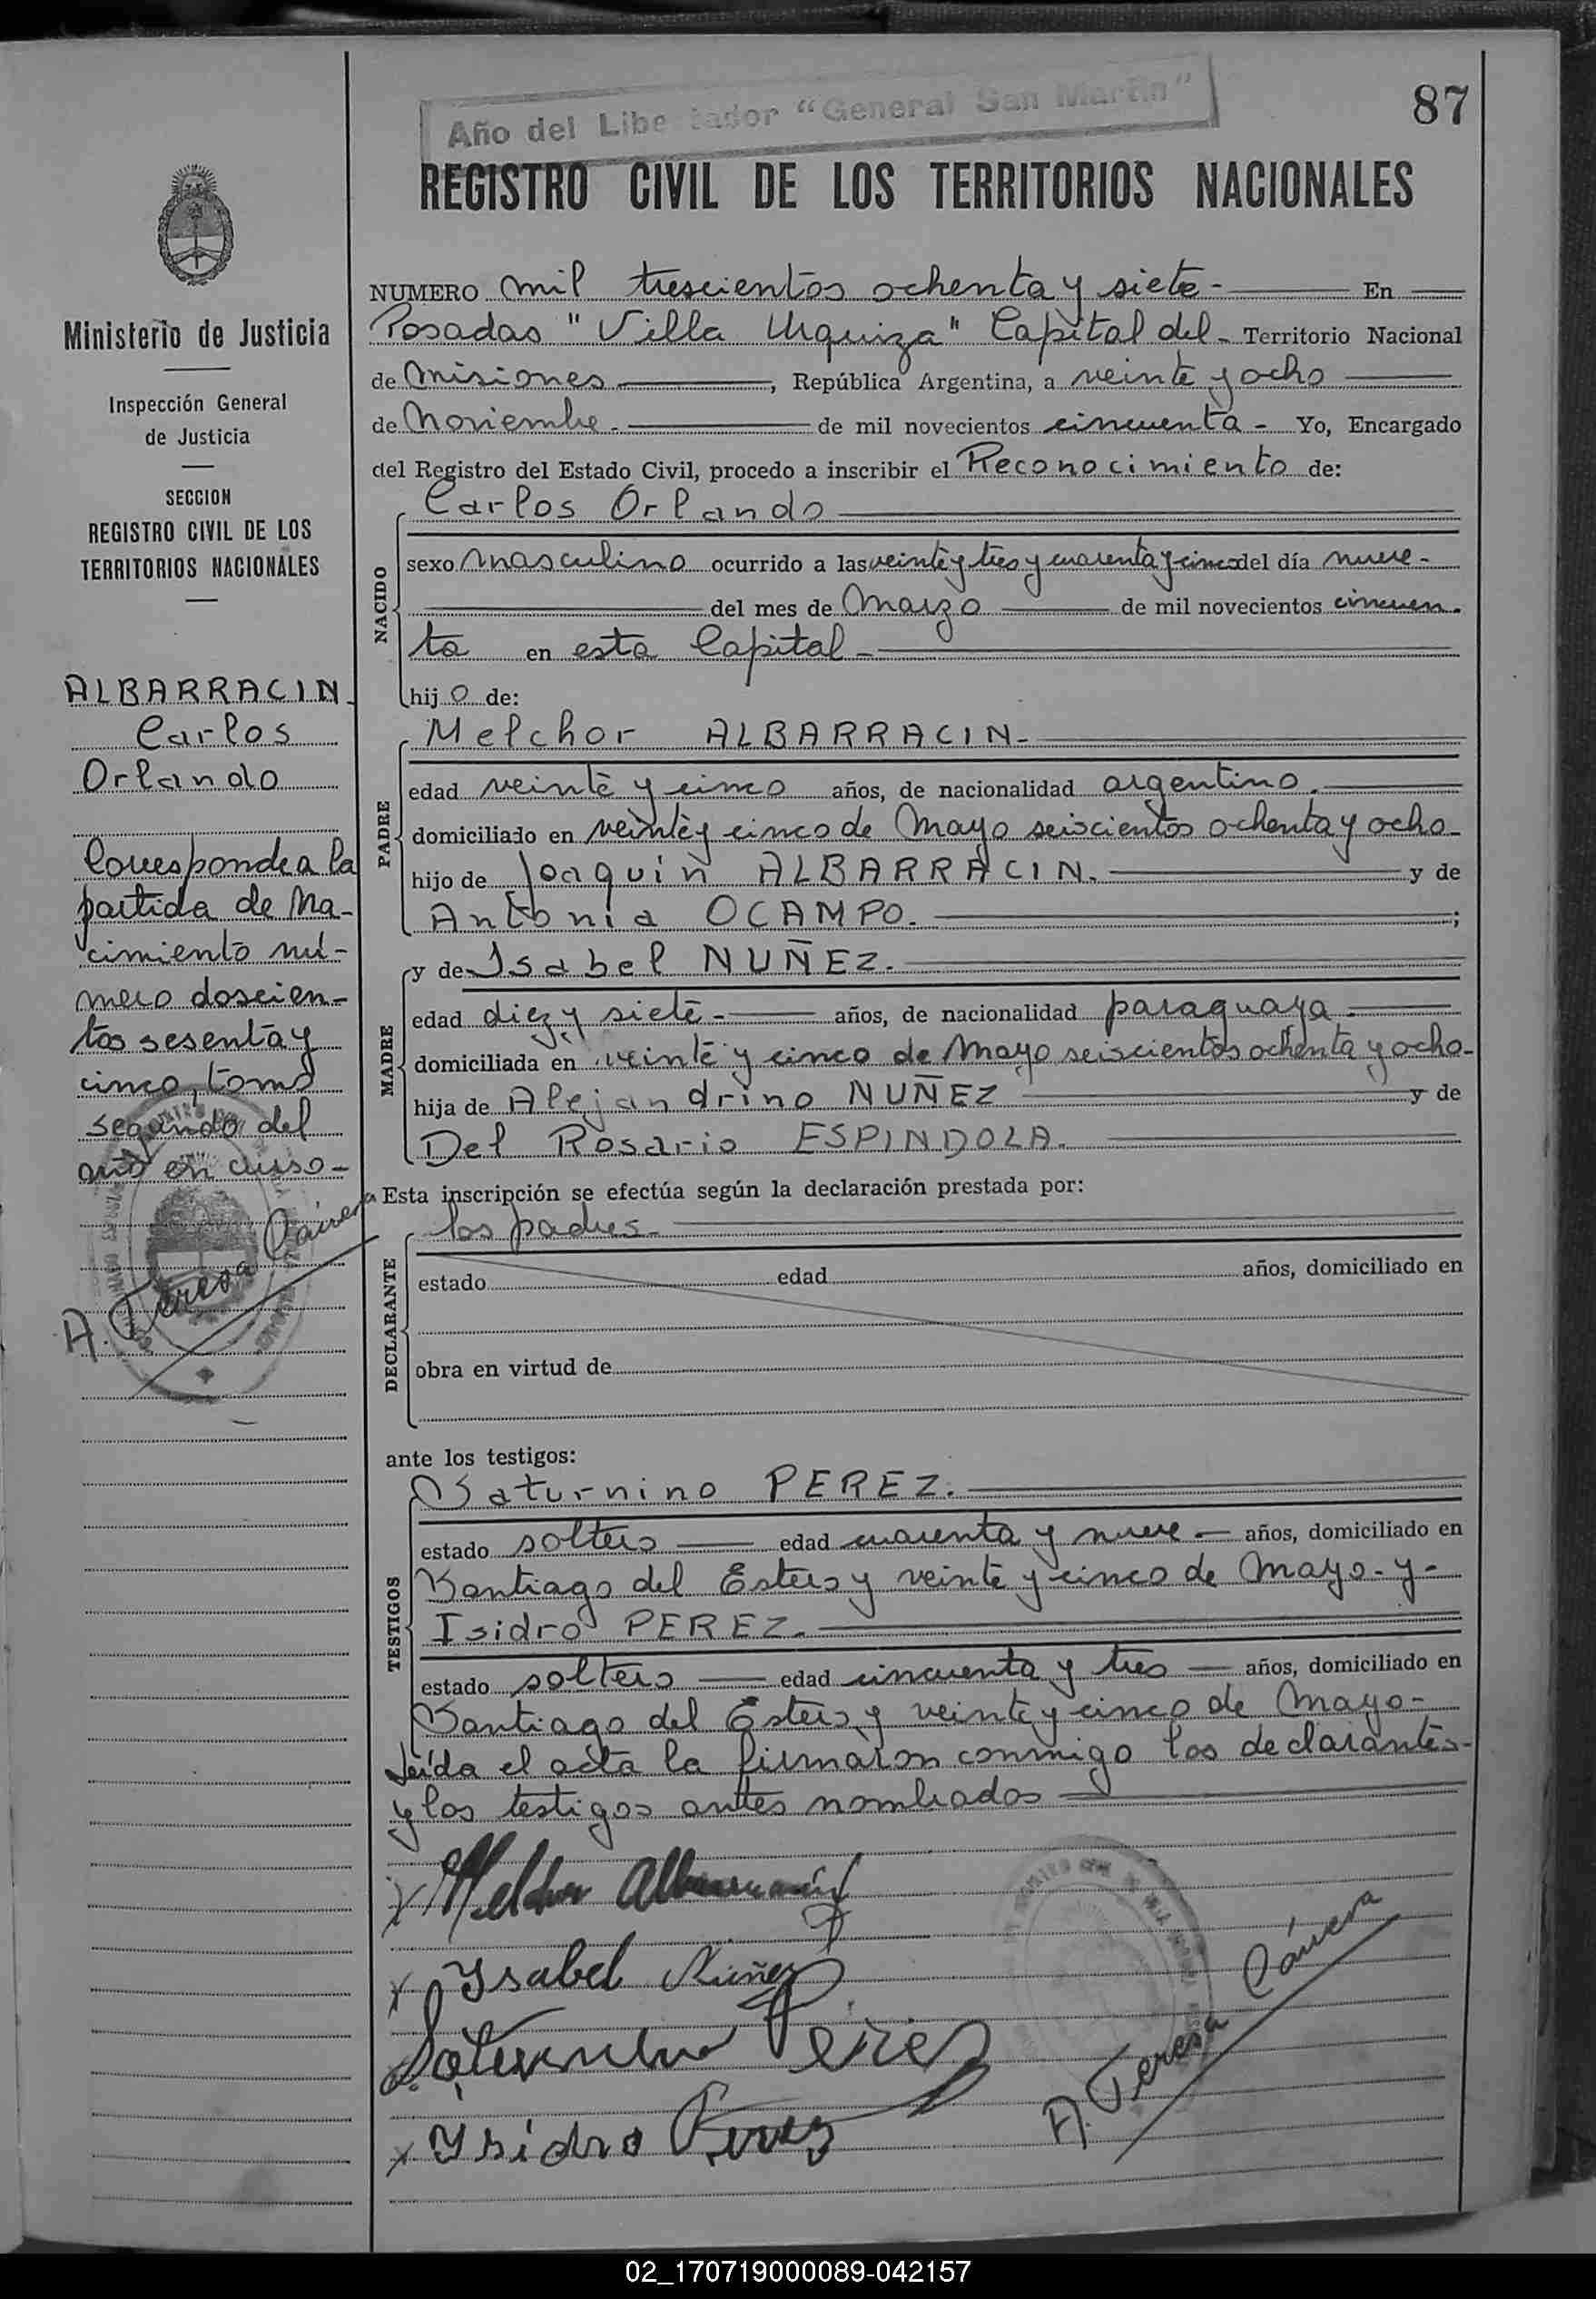 Año del Libertador "General San Martín"
87
REGISTRO CIVIL DE LOS TERRITORIOS NACIONALES
Ministerio de Justicia
Inspección General
de Justicia
SECCION
REGISTRO CIVIL DE LOS
TERRITORIOS NACIONALES
ALBARRACIN
Carlos
Orlando
Corresponde a la
partida de Na-
cimiento nú-
mero doscien-
tos sesenta y
cinco, tomo
segundo del
año en curso-
A. Teresa Cáceres
NUMERO mil trescientos ochenta y siete- En
Posadas "Villa Urquiza" Capital del- Territorio Nacional
de Misiones, República Argentina, a veinte y ocho
de Noviembre.- de mil novecientos cincuenta- Yo, Encargado
del Registro del Estado Civil, procedo a inscribir el Reconocimiento de:
NACIDO
Carlos Orlando
sexo masculino ocurrido a las veinte y tres y cuarenta y cinco del día nueve-
del mes de Marzo de mil novecientos cincuen-
ta en esta Capital-
hijo de:
PADRE
Melchor ALBARRACIN-
edad veinte y cinco años, de nacionalidad argentino.
domiciliado en veinte y cinco de Mayo seiscientos ochenta y ocho-
hijo de Joaquín ALBARRACIN. y de
Antonia OCAMPO. ;
MADRE
y de Isabel NUÑEZ.
edad diez y siete- años, de nacionalidad paraguaya.
domiciliada en veinte y cinco de Mayo seiscientos ochenta y ocho-
hija de Alejandrino NUÑEZ y de
Del Rosario ESPINDOLA.
Esta inscripción se efectúa según la declaración prestada por:
DECLARANTE
los padres-
estado edad años, domiciliado en
obra en virtud de
ante los testigos:
TESTIGOS
Saturnino PEREZ.
estado soltero edad cuarenta y nueve- años, domiciliado en
Santiago del Estero y veinte y cinco de Mayo- y-
Isidro PEREZ.
estado soltero edad cincuenta y tres años, domiciliado en
Santiago del Estero y veinte y cinco de Mayo-
Leída el acta la firmaron conmigo los declarantes-
y los testigos antes nombrados
x Melchor Albarracín
x Ysabel Núñez
Saturnino Pérez
x Ysidro Perez
A. Teresa Cáceres
02_170719000089-042157